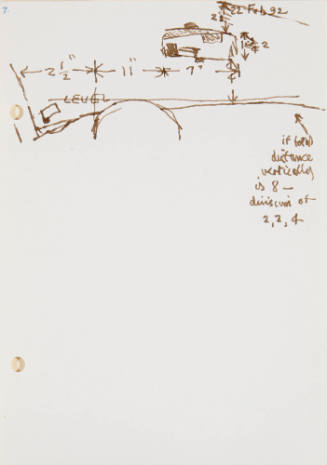 7.
22 Feb 92
2½" 11" 7"
2
LEVEL
if total
distance
vertically
is 8 –
division of
2, 2, 4